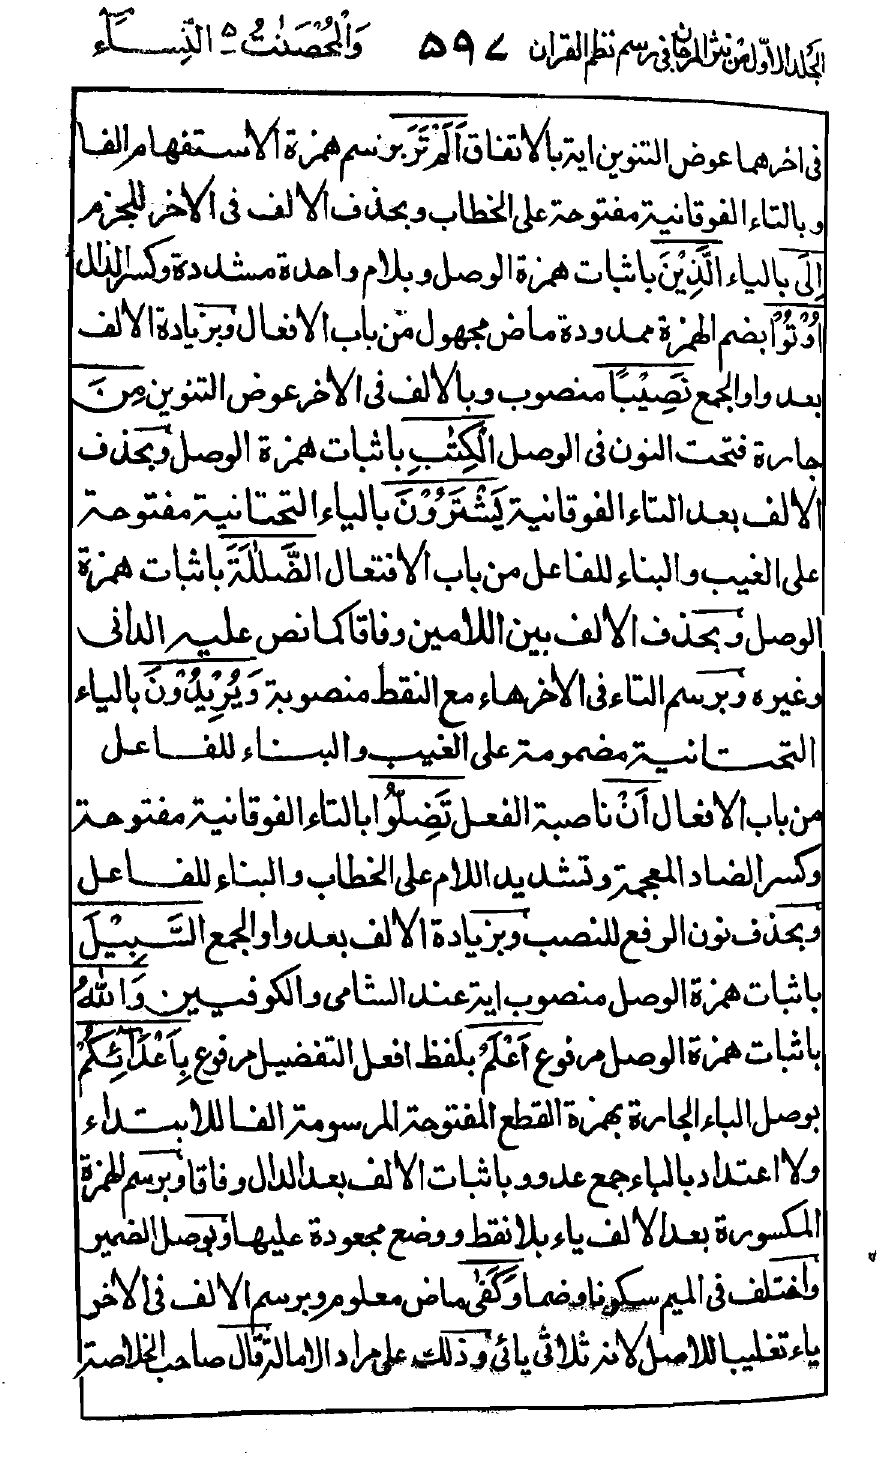 الجلد الاول من نثر المرجان فى رسم نظم القران ٥٩٧ وَالْمُحْصَنٰتُ ٥ النِّسَاء
فى اخرهما عوض التنوين اية بالاتفاق اَلَمْ تَرَ برسم همزة الاستفهام الفا
وبالتاء الفوقانية مفتوحة على الخطاب وبحذف الالف فى الاخر للجزم
اِلَى بالياء الَّذِيْنَ باثبات همزة الوصل وبلام واحدة مشددة وكسر الذال
اُوْتُوْا بضم الهمزة ممدودة ماض مجهول من باب الافعال وبزيادة الالف
بعد واو الجمع نَصِيْبًا منصوب وبالالف فى الاخر عوض التنوين مِنَ
جارة فتحت النون فى الوصل الْكِتٰبِ باثبات همزة الوصل وبحذف
الالف بعد التاء الفوقانية يَشْتَرُوْنَ بالياء التحتانية مفتوحة
على الغيب والبناء للفاعل من باب الافتعال الضَّلٰلَةَ باثبات همزة
الوصل وبحذف الالف بين اللامين وفاقا كما نص عليه الدانى
وغيره وبرسم التاء فى الاخر هاء مع النقط منصوبة وَيُرِيْدُوْنَ بالياء
التحتانية مضمومة على الغيب والبناء للفاعل
من باب الافعال اَنْ ناصبة الفعل تَضِلُّوا بالتاء الفوقانية مفتوحة
وكسر الضاد المعجمة وتشديد اللام على الخطاب والبناء للفاعل
وبحذف نون الرفع للنصب وبزيادة الالف بعد واو الجمع السَّبِيْلَ
باثبات همزة الوصل منصوب اية عند الشامى والكوفيين وَاللّٰهُ
باثبات همزة الوصل مرفوع اَعْلَمُ بلفظ افعل التفضيل مرفوع بِاَعْدَآئِكُمْ
بوصل الباء الجارة بهمزة القطع المفتوحة المرسومة الفا للابتداء
ولا اعتداد بالباء جمع عدو وباثبات الالف بعد الدال وفاقا وبرسم الهمزة
المكسورة بعد الالف ياء بلا نقط ووضع مجعودة عليها وبوصل الضمير
واختلف فى الميم سكونا وضما وَكَفٰى ماض معلوم وبرسم الالف فى الاخر
ياء تغليبا للاصل لانه ثلاثى يائى وذلك على مراد الامالة قال صاحب الخلاصة